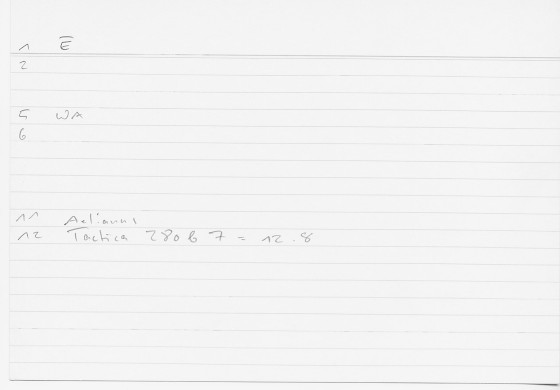 1 E̅
2
5 WA
6
11 Aelianus
12 Tactica 280 b 7 = 12.8